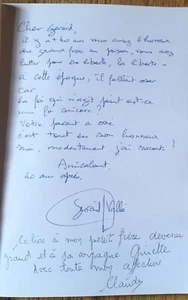 Cher Gérard,
il y a 40 ans vous aviez l'honneur
du grand père en prison, vous avez
lutter pour sa liberté, la liberté -
à cette époque, il fallait oser
car
La foi qui n'agit point est-ce
une foi sincère
Votre parent a osé
c'est tout en son honneur
Moi, modestement j'ai raconté !
Amicalement,
40 ans après,
Ce livre à mon petit frère devenu
grand et à sa compagne Ginette
Avec toute mon affection
Claude